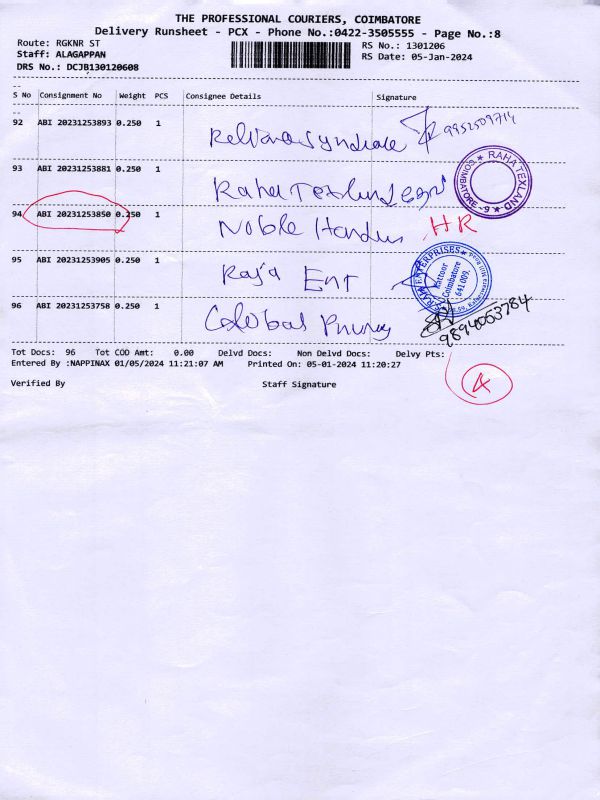 THE PROFESSIONAL COURIERS, COIMBATORE
Delivery Runsheet - PCX - Phone No.:0422-3505555 - Page No.:8
Route: RGKNR ST
RS No.: 1301206
Staff: ALAGAPPAN
RS Date: 05-Jan-2024
DRS No.: DCJB130120608
S No Consignment No Weight PCS Consignee Details Signature
92 ABI 20231253893 0.250 1
93 ABI 20231253881 0.250 1 Raha Texland
RAHA TEXLAND COIMBATORE-6
94 ABI 20231253850 0.250 1 Noble HR
95 ABI 20231253905 0.250 1 Raja Ent
ENTERPRISES Kattoor Coimbatore 641 009.
96 ABI 20231253758 0.250 1 Global
9894053784
Tot Docs: 96 Tot COD Amt: 0.00 Delvd Docs: Non Delvd Docs: Delvy Pts:
Entered By :NAPPINAX 01/05/2024 11:21:07 AM Printed On: 05-01-2024 11:20:27
4
Verified By Staff Signature